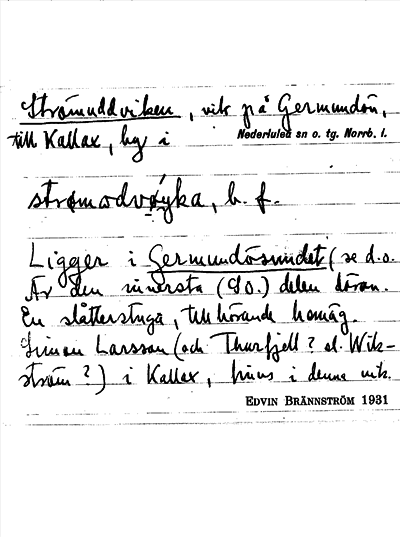 Strömuddviken, vik på Germundön,
till Kallax, by i Nederluleå sn o. tg. Norrb. l.
strømodvøyka, b. f.
Ligger i Germundösundet (se d.o.
Är den innersta (SO.) delen däran.
En slåtterstuga, tillhörande hemäg.
Simon Larsson (och Thurfjell? el. Wik-
ström?) i Kallax, finns i denna vik.
EDVIN BRÄNNSTRÖM 1931